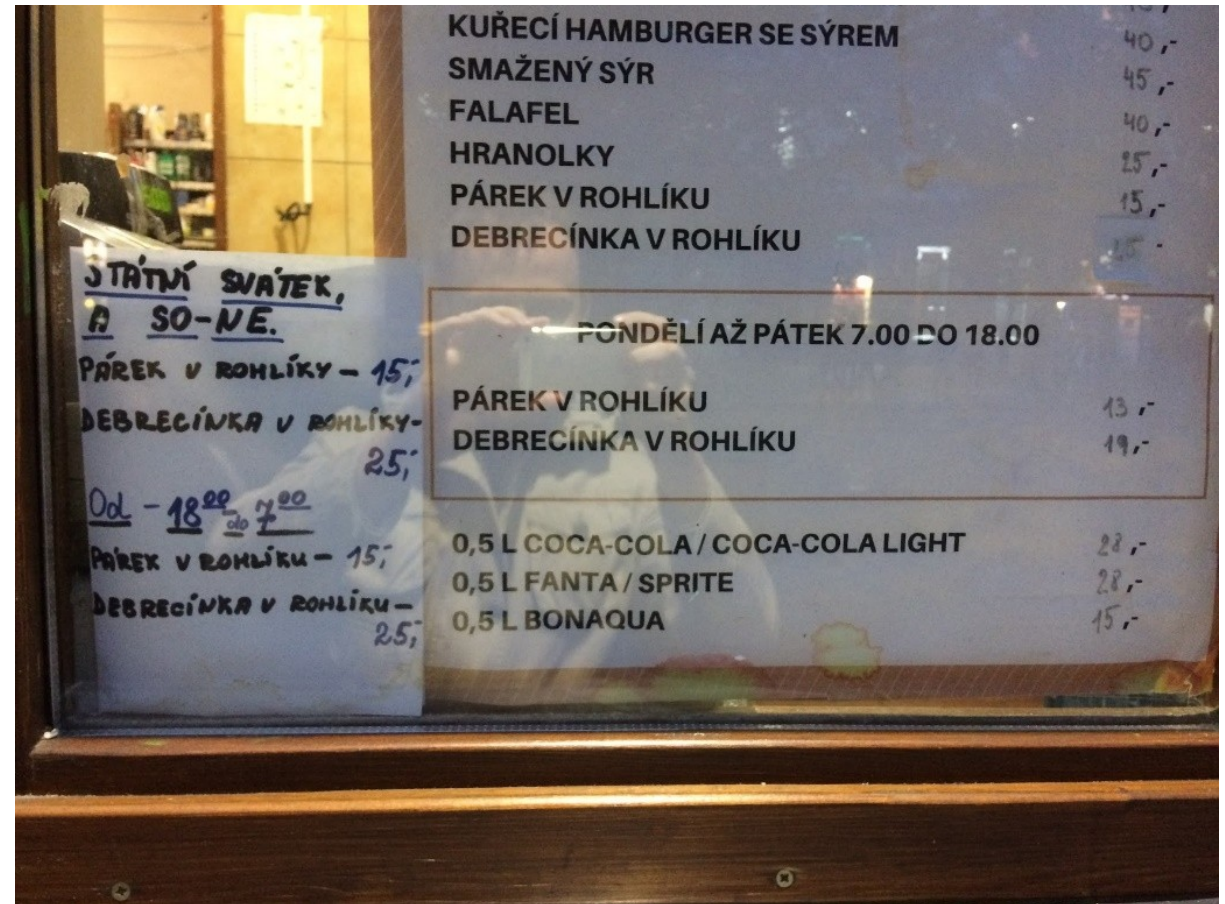 KUŘECÍ HAMBURGER SE SÝREM 40,-
SMAŽENÝ SÝR 45,-
FALAFEL 40,-
HRANOLKY 25,-
PÁREK V ROHLÍKU 15,-
DEBRECÍNKA V ROHLÍKU
PONDĚLÍ AŽ PÁTEK 7.00 DO 18.00
PÁREK V ROHLÍKU 13,-
DEBRECÍNKA V ROHLÍKU 19,-
0,5 L COCA-COLA / COCA-COLA LIGHT 28,-
0,5 L FANTA / SPRITE 28,-
0,5 L BONAQUA 15,-
STÁTNÍ SVÁTEK,
A SO-NE.
PÁREK V ROHLÍKY – 15,-
DEBRECÍNKA V ROHLÍKY-
25,-
Od - 18⁰⁰ do 7⁰⁰
PÁREK V ROHLÍKU – 15,-
DEBRECÍNKA V ROHLÍKU –
25,-